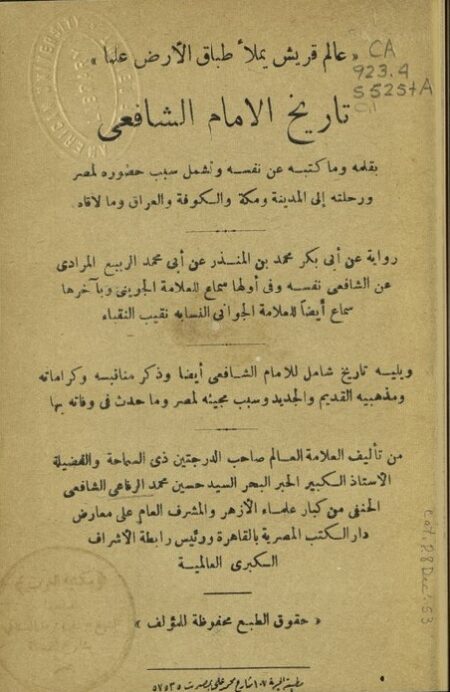 « عالم قريش يملأ طباق الأرض علما »
CA
923.4
S525tA
C.1
تاريخ الامام الشافعى
بقلمه وما كتبه عن نفسه وتشمل سبب حضوره لمصر
ورحلته إلى المدينة ومكة والكوفة والعراق وما لاقاه
رواية عن أبى بكر محمد بن المنذر عن أبى محمد الربيع المرادى
عن الشافعى نفسه وفى أولها سماع للعلامة الجوينى وبآخرها
سماع أيضاً للعلامة الجوانى النسابه نقيب النقباء
ويليه تاريخ شامل للامام الشافعى أيضا وذكر مناقبه وكراماته
ومذهبيه القديم والجديد وسبب مجيئه لمصر وما حدث فى وفاته بها
من تأليف العلامة العالم صاحب الدرجتين ذى السماحة والفضيلة
الاستاذ الكبير الحبر البحر السيد حسين محمد الرفاعى الشافعى
الحنفى من كبار علماء الأزهر والمشرف العام على معارض
دار الكتب المصرية بالقاهرة ورئيس رابطة الأشراف
الكبرى العالمية
« حقوق الطبع محفوظة للمؤلف »
cat. 28 Dec. '53
شارع محمد على بمصر ت ٥٧٥٣٥